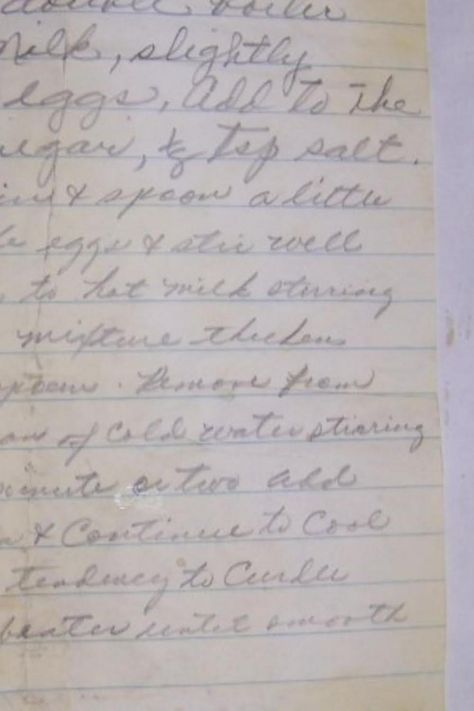 double boiler
milk, slightly
eggs, add to the
ugar, ½ tsp salt.
& spoon a little
eggs & stir well
to hot milk stirring
mixture thickens
spoon. Remove from
of cold water stirring
minute or two add
& Continue to Cool
tendency to Curdle
beater until smooth